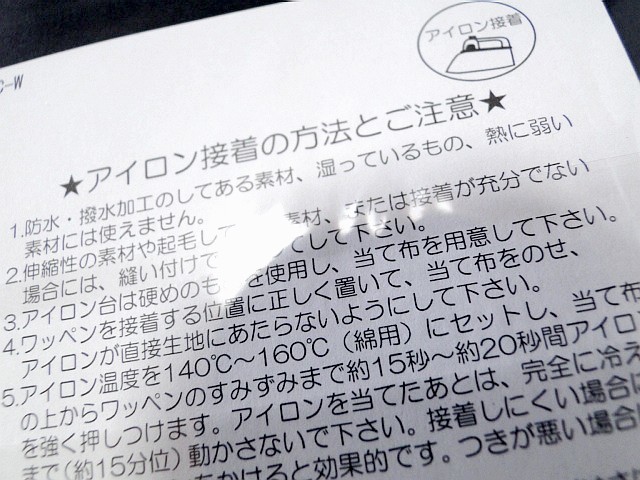 C-W
アイロン接着
★アイロン接着の方法とご注意★
1.防水・撥水加工のしてある素材、湿っているもの、熱に弱い
素材には使えません。
2.伸縮性の素材や起毛して 素材、または接着が充分でない
場合には、縫い付けて してして下さい。
3.アイロン台は硬めのも を使用し、当て布を用意して下さい。
4.ワッペンを接着する位置に正しく置いて、当て布をのせ、
アイロンが直接生地にあたらないようにして下さい。
5.アイロン温度を140℃〜160℃（綿用）にセットし、当て布
の上からワッペンのすみずみまで約15秒〜約20秒間アイロン
を強く押しつけます。アイロンを当てたあとは、完全に冷え
まで（約15分位）動かさないで下さい。接着しにくい場合に
をかけると効果的です。つきが悪い場合